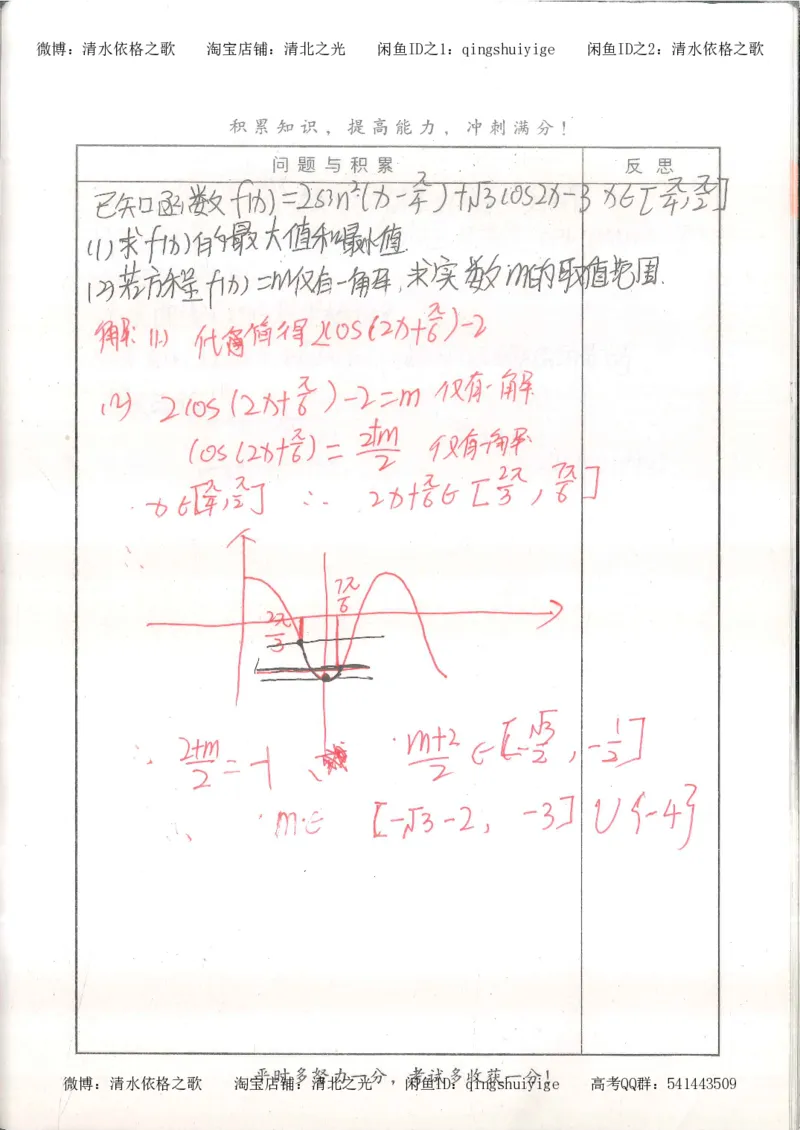 微博：清水依格之歌 淘宝店铺：清北之光 闲鱼ID之1：qingshuiyige 闲鱼ID之2：清水依格之歌
积累知识，提高能力，冲刺满分！
问题与积累 反思
已知函数f(x)=2sin²(x-π/4)+√3cos2x-3 x∈[π/4,π/2]
(1)求f(x)的最大值和最小值
(2)若方程f(x)=m仅有一解,求实数m的取值范围.
解:(1) 化简得2cos(2x+π/6)-2
(2) 2cos(2x+π/6)-2=m 仅有一解
cos(2x+π/6)=2+m/2 仅有一解
x∈[π/4,π/2] ∴ 2x+π/6∈[2π/3,7π/6]
∴
7π/6
2π/3
∴ 2+m/2=-1 、 m+2/2∈[-√3/2,-1/2]
∴ m∈ [-√3-2, -3]∪{-4}
平时多努力一分，考试多收获一分！
微博：清水依格之歌 淘宝店铺：清北之光 闲鱼ID之1：qingshuiyige 高考QQ群：541443509